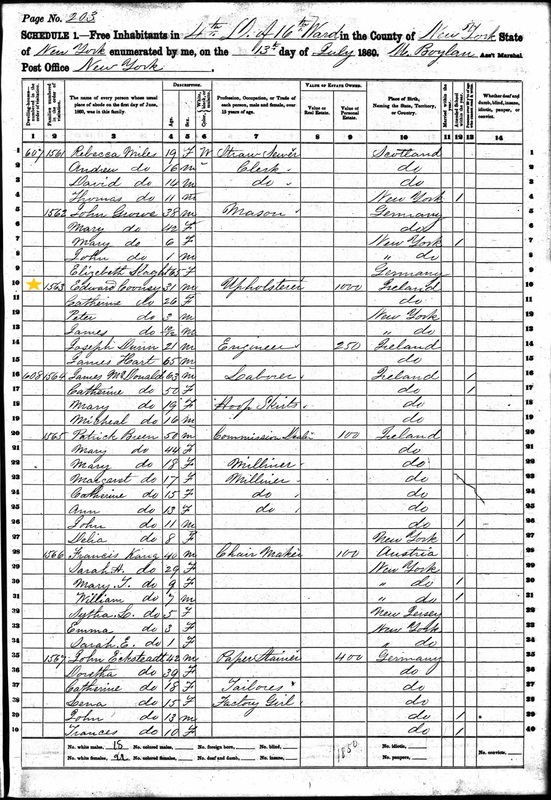 Page No. 203
SCHEDULE 1.—Free Inhabitants in 4th D. of 16th Ward in the County of New York State
of New York enumerated by me, on the 13th day of July 1860. M. Boylan Ass't Marshal
Post Office New York
DESCRIPTION. VALUE OF ESTATE OWNED.
The name of every person whose usual place of abode on the first day of June, 1860, was in this family. Age. Sex. Profession, Occupation, or Trade of each person, male and female, over 15 years of age. Value of Real Estate. Value of Personal Estate. Place of Birth, Naming the State, Territory, or Country. Whether deaf and dumb, blind, insane, idiotic, pauper, or convict.
1 2 3 4 5 6 7 8 9 10 11 12 13 14
1 607 1561 Rebecca Miles 19 F W Straw Sewer Scotland 1
2 Andrew do 16 m " Clerk do 2
3 David do 14 m do do 3
4 Thomas do 11 m New York 1 4
5 1562 John 38 m Mason Germany 5
6 Mary do 42 F do 6
7 Mary do 6 F New York 1 7
8 John do 1 m " do 8
9 Elizabeth 65 F Germany 9
10 1563 Edward 31 m Upholsterer 1000 Ireland 10
11 Catherine do 26 F do 11
12 Peter do 3 m New York 12
13 James do m " do 13
14 Joseph Dunn 21 m Engineer 250 Ireland 14
15 James Hart 65 m do 15
16 608 1564 James McDonald 63 m Laborer Ireland 1 16
17 Catherine do 50 F do 1 17
18 Mary do 19 F Hoop Skirts do 18
19 Micheal do 16 m do 19
20 1565 Patrick Breen 50 m Commission 100 Ireland 20
21 Mary do 44 F do 21
22 Mary do 18 F Milliner do 22
23 Margaret do 17 F Milliner do 23
24 Catherine do 15 F do do 24
25 Ann do 13 F do do 25
26 John do 11 m do 1 26
27 Delia do 8 F New York 1 27
28 1566 Francis 40 m Chair Maker 100 Austria 28
29 Sarah H. do 29 F New York 29
30 Mary T. do 9 F " do 1 30
31 William do 7 m " do 1 31
32 do 5 F New Jersey 32
33 Emma do 3 F New York 33
34 Sarah E. do 1 F " do 34
35 1567 John Ecksteadt 42 m Paper Stainer 400 Germany 35
36 Doretha do 39 F do 36
37 Catherine do 18 F Tailores do 37
38 Lena do 15 F Factory Girl do 38
39 John do 13 m do 1 39
40 Frances do 10 F do 1 40
No. white males, 18 No. colored males, No. foreign born, No. blind, No. idiotic, No. convicts,
No. white females, 22 No. colored females, No. deaf and dumb, No. insane, 1850 No. paupers,